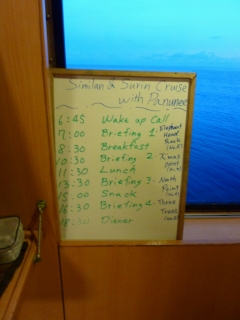 Similan & Surin Cruise
with Panunee
6:45 Wake up Call
7:00 Briefing 1. Elephant Head Rock
8:30 Breakfast
10:30 Briefing 2 X'mas point
11:30 Lunch
13:30 Briefing 3. North Point
15.00 Snack
16:30 Briefing 4. Three Trees
18:30 Dinner